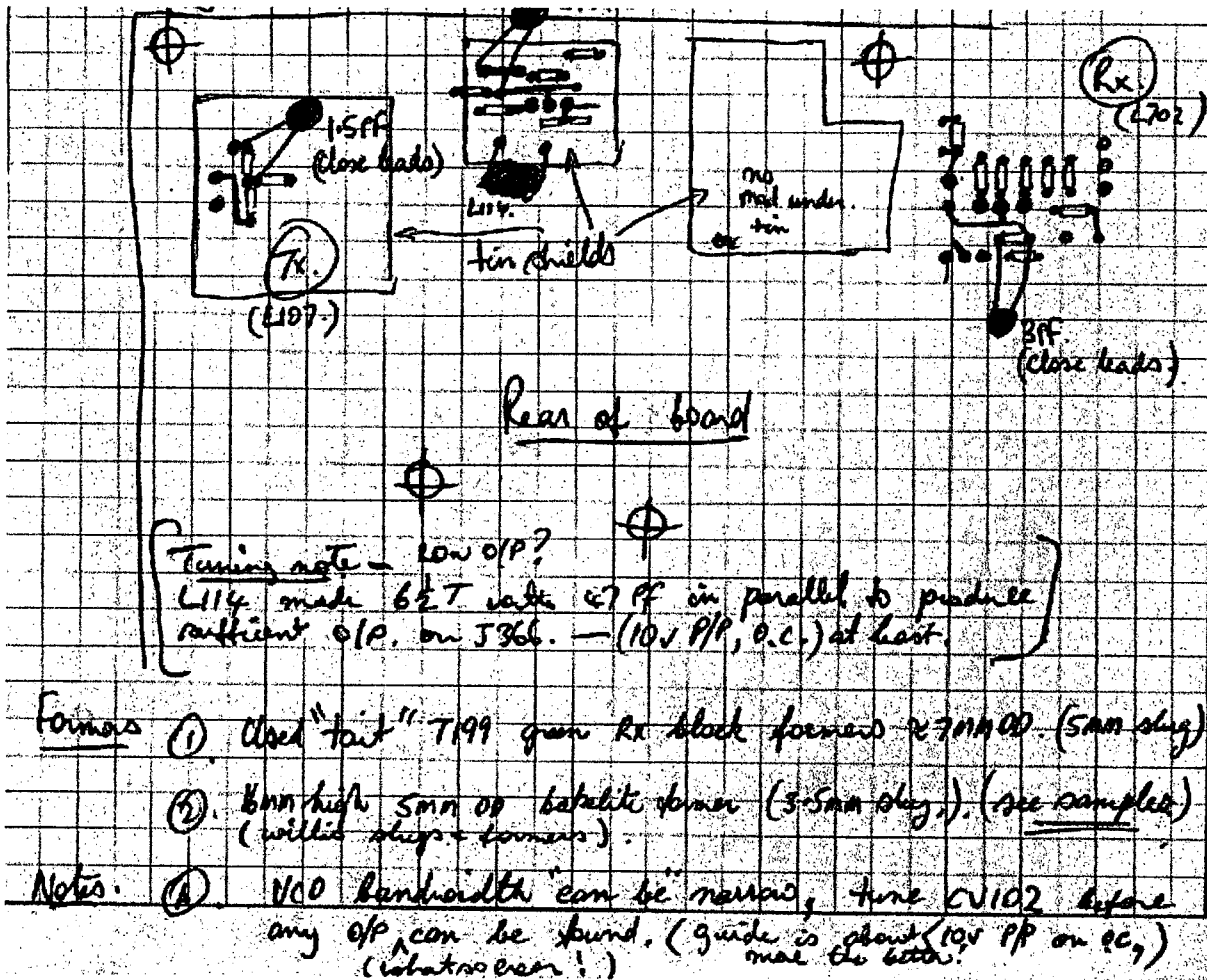 Rx.
(L702)
1.5PF
(close leads)
L114.
no
mod under
tin
Tx.
tin shields
(L107.)
3PF.
(close leads)
Rear of board
Tuning note - Low O/P?
L114 made 6½T with 47 PF in parallel to produce
sufficient O/P. on J366. — (10V P/P, O.C.) at least.
Formers ① Used "tait" T199 green Rx block formers ≈ 7MM OD. (5mm slug)
②. 6mm high 5mm OD bakelite former (3.5mm slug.). (see samples)
(willis slugs + formers).
Notes. Ⓐ VCO bandwidth "can be" narrow, tune CV102 before
any O/P can be found. (guide is about 10V P/P on
(whatsoever!) more the better.